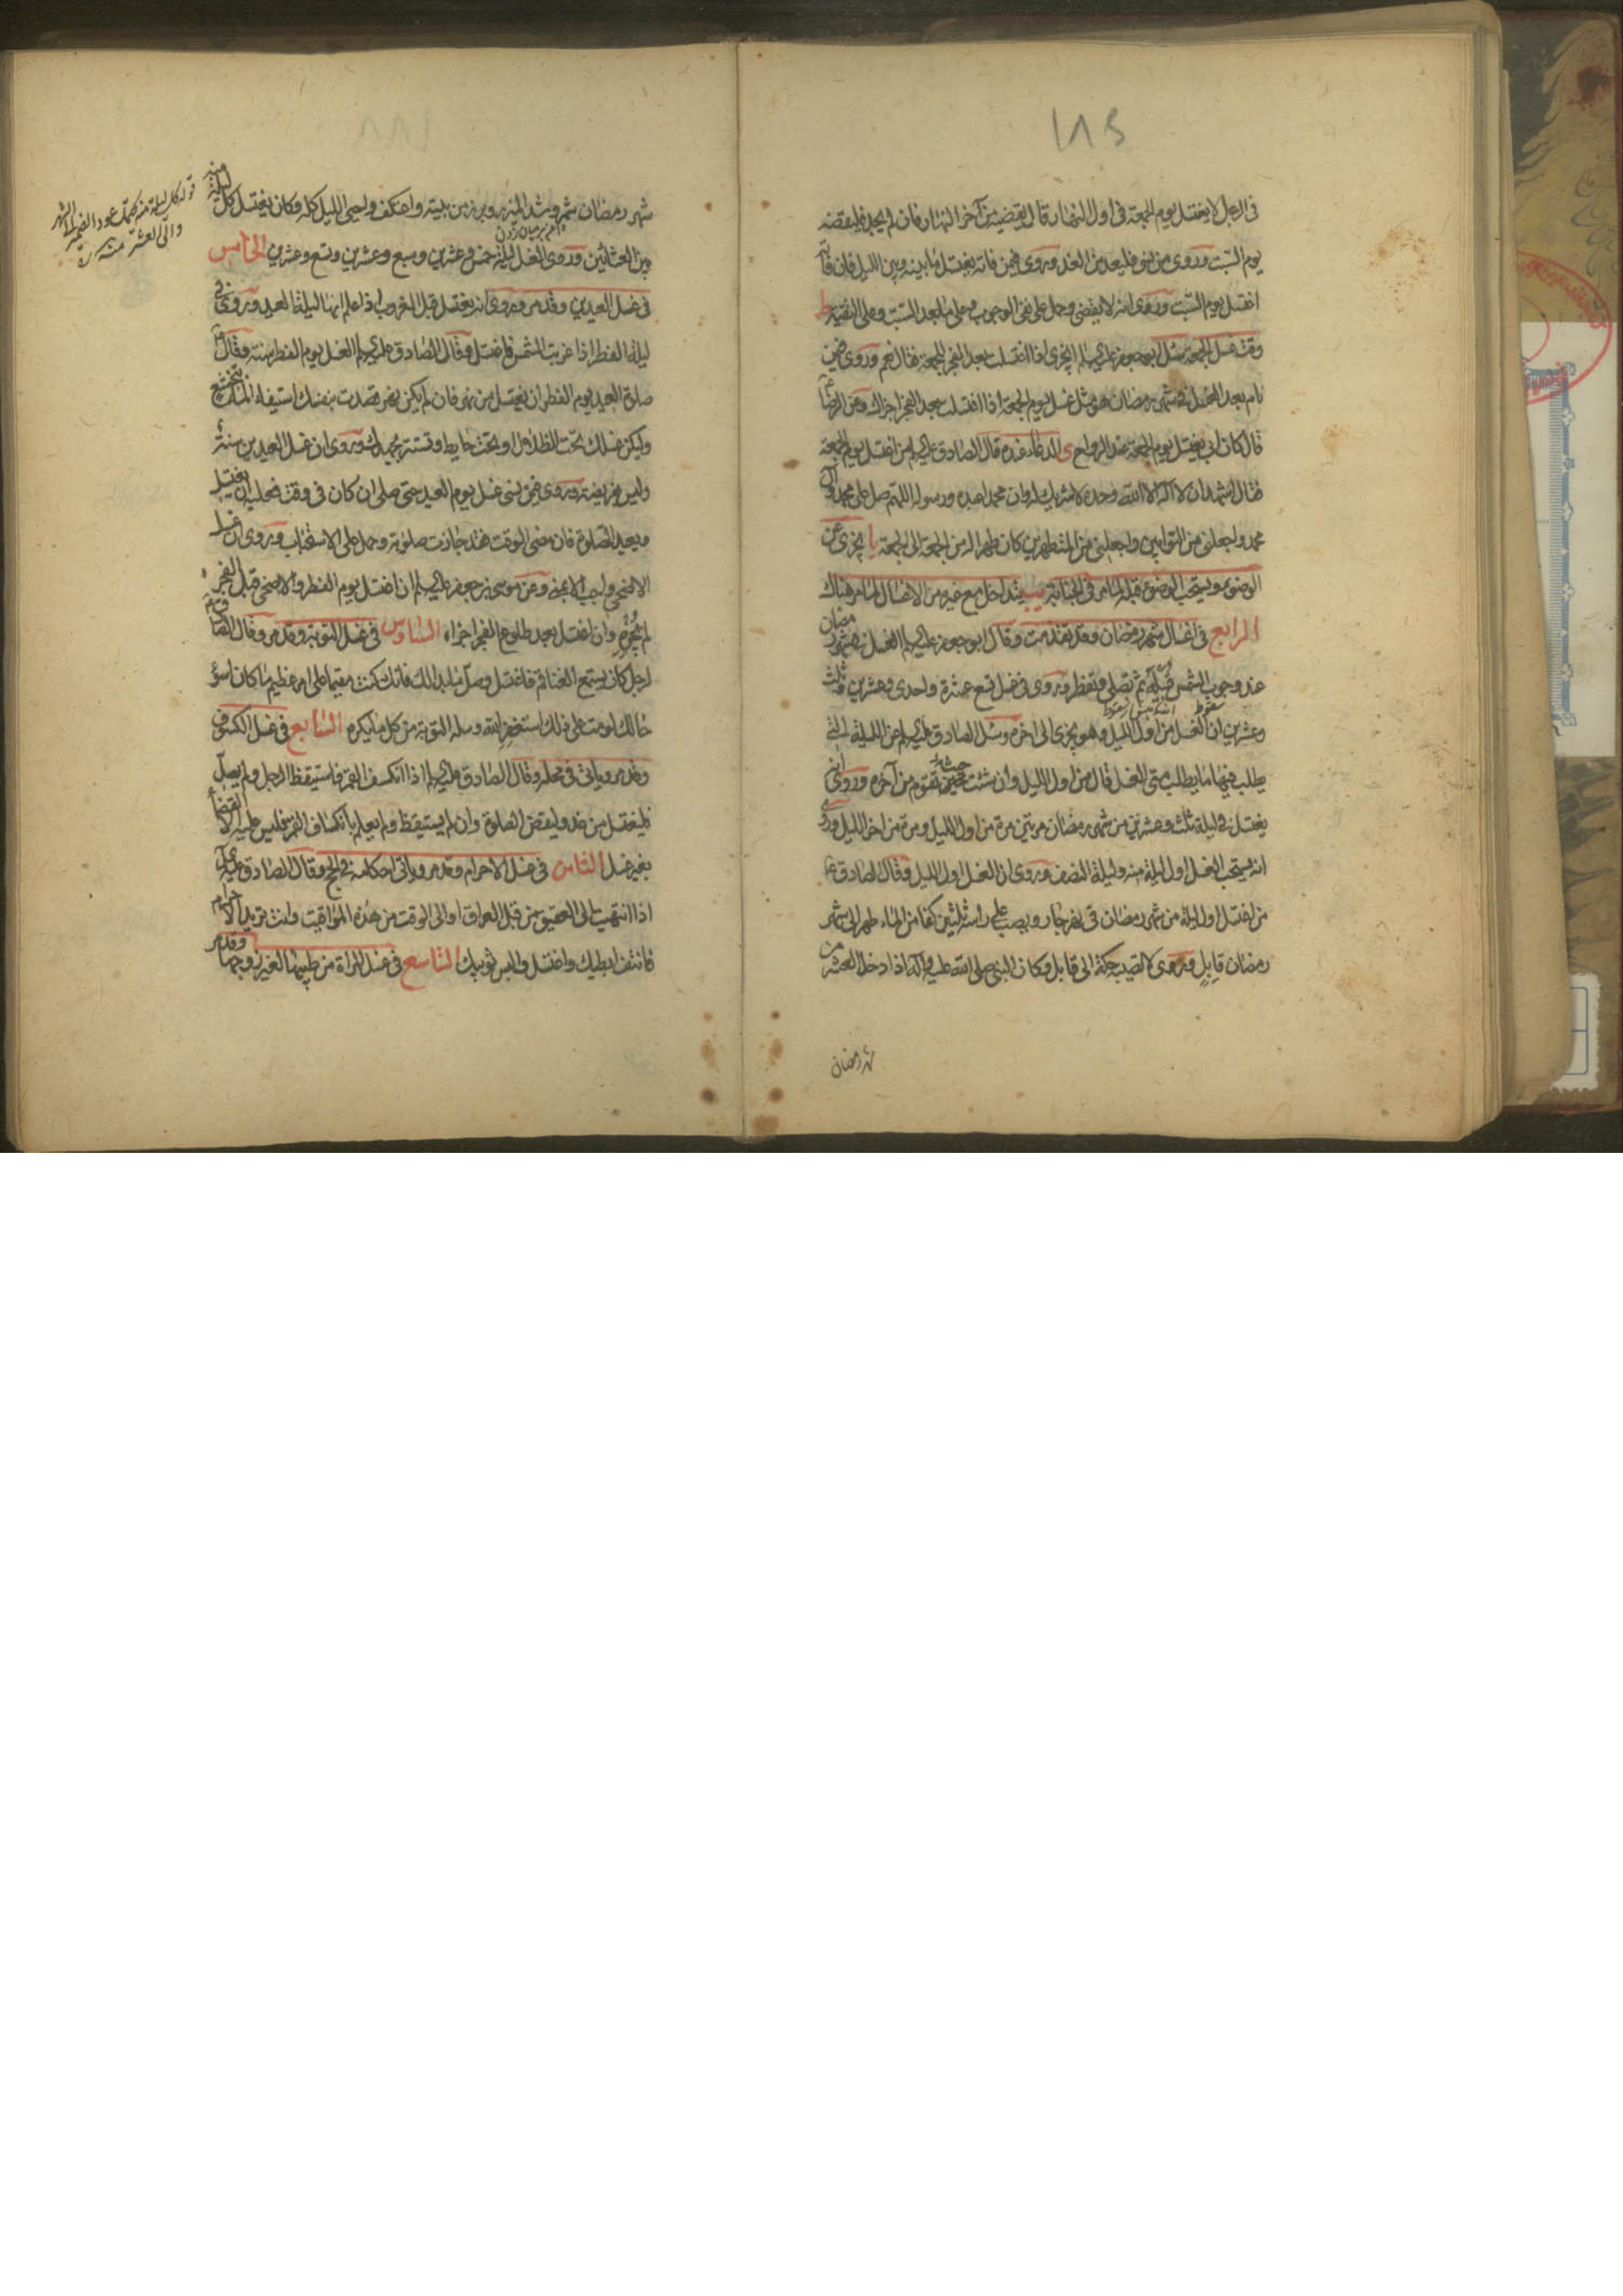 ١٨٥
في الرجل لا يغتسل يوم الجمعة في اول النهار قال يقضيه من آخر النهار فان لم يجد فليقضه
يوم السبت وروى من نسى فليعد من الغد وروى فيمن فاته يغتسل ما بينه وبين الليل فان فاته
اغتسل يوم السبت وروى انه لا يقضى وحمل على نفى الوجوب وعلى ما بعد السبت وعلى التقية ط
وقت غسل الجمعة سئل ابو جعفر عليه السلم ايجزى اذا اغتسلت بعد الفجر للجمعة فقال نعم وروى فيمن
نام بعد الغسل في شهر رمضان هو مثل غسل يوم الجمعة اذا اغتسلت بعد الفجر اجزاك وعن الرضا ع
قال كان ابى يغتسل يوم الجمعة عند الرواح ى الدعاء عنده قال الصادق عليه السلم من اغتسل يوم الجمعة
فقال اشهد ان لا اله الا الله وحده لا شريك له وان محمدا عبده ورسوله اللهم صل على محمد وآل
محمد واجعلنى من التوابين واجعلنى من المتطهرين كان طهرا له من الجمعة الى الجمعة يا يجزى عن
الوضوء ويستحب الوضوء قبله لما مر في الجنابة يب يتداخل مع غيره من الاغسال لما مر هناك
الرابع في اغسال شهر رمضان وقد تقدمت وقال ابو جعفر عليه السلم الغسل في شهر رمضان
عند وجوب الشمس قبيله ثم تصلى وتفطر وروى في غسل تسع عشرة واحدى وعشرين وثلث
وعشرين ان الغسل من اول الليل وهو يجزى الى اخره وسئل الصادق عليه السلم عن الليلة التى
يطلب فيها ما يطلب متى الغسل قال من اول الليل وان شئت حيث تقوم من آخره وروى انه
يغتسل في ليلة ثلث وعشرين من شهر رمضان مرتين مرة من اول الليل ومرة من اخر الليل وروى
انه يستحب الغسل اول ليلة منه وليلة النصف وروى ان الغسل اول الليل وقال الصادق ع
من اغتسل اول ليلة من شهر رمضان في نهر جار ويصب على راسه ثلثين كفا من الماء طهر الى شهر
رمضان قابل وروى لا تصيبه حكة الى قابل وكان النبى صلى الله عليه وآله اذا دخل العشر من
شهر رمضان
شهر رمضان شمر وشد المئزر وبرز من بيته واعتكف واحيى الليل كله وكان يغتسل كل ليلة منه
بين العشائين وروى الغسل ليلة خمس وعشرين وسبع وعشرين وتسع وعشرين الخامس
في غسل العيدين وقد مر وروى انه يغتسل قبل الغروب اذا علم انها ليلة العيد وروى في
ليلة الفطر اذا غربت الشمس فاغتسل وقال الصادق عليه السلم الغسل يوم الفطر سنة وقال ع
صلوة العيد يوم الفطر ان يغتسل من نهر فان لم يكن نهر قصدت بنفسك استيفاء الماء بتخشع
وليكن غسلك تحت الظلال او تحت حايط وتستتر بجهدك وروى ان غسل العيدين سنة
وليس بفريضة وروى فيمن نسى غسل يوم العيد حتى صلى ان كان في وقت فعليه ان يغتسل
ويعيد الصلوة فان مضى الوقت فقد جازت صلوته وحمل على الاستحباب وروى ان غسل
الاضحى واجب الا بمنى وعن موسى بن جعفر عليه السلم ان اغتسل يوم الفطر والاضحى قبل الفجر
لم يجزه وان اغتسل بعد طلوع الفجر اجزاه السادس في غسل التوبة وقد مر وقال الصادق ع
لرجل كان يستمع الغناء قم فاغتسل وصل ما بدا لك فانك كنت مقيما على امر عظيم ما كان اسوء
حالك لو مت على ذلك استغفر الله وسله التوبة من كل ما يكره السابع في غسل الكسوف
وقد مر وياتى في محله وقال الصادق عليه السلم اذا انكسف القمر فاستيقظ الرجل ولم يصل
فليغتسل من غد وليقض الصلوة وان لم يستيقظ ولم يعلم بانكساف القمر فليس عليه الا القضاء
بغير غسل الثامن في غسل الاحرام وقد مر وياتى احكامه في الحج وقال الصادق عليه السلم
اذا انتهيت الى العقيق من قبل العراق او الى الوقت من هذه المواقيت وانت تريد الاحرام
فانتف ابطيك واغتسل والبس ثوبيك التاسع في غسل المراة من طيبها لغير زوجها وقد مر
قوله كل ليلة منه يحتمل عود الضمير الى الشهر
والى العشر منه